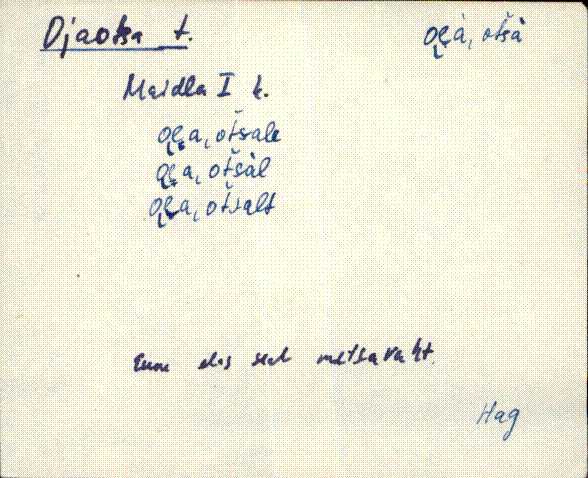 Ojaotsa t.
oe̮à, otšà
Maidla I k.
oe̮a, otšale
oe̮a, otšàl
oe̮a, otšalt
Enne elas seal metsavaht.
Hag